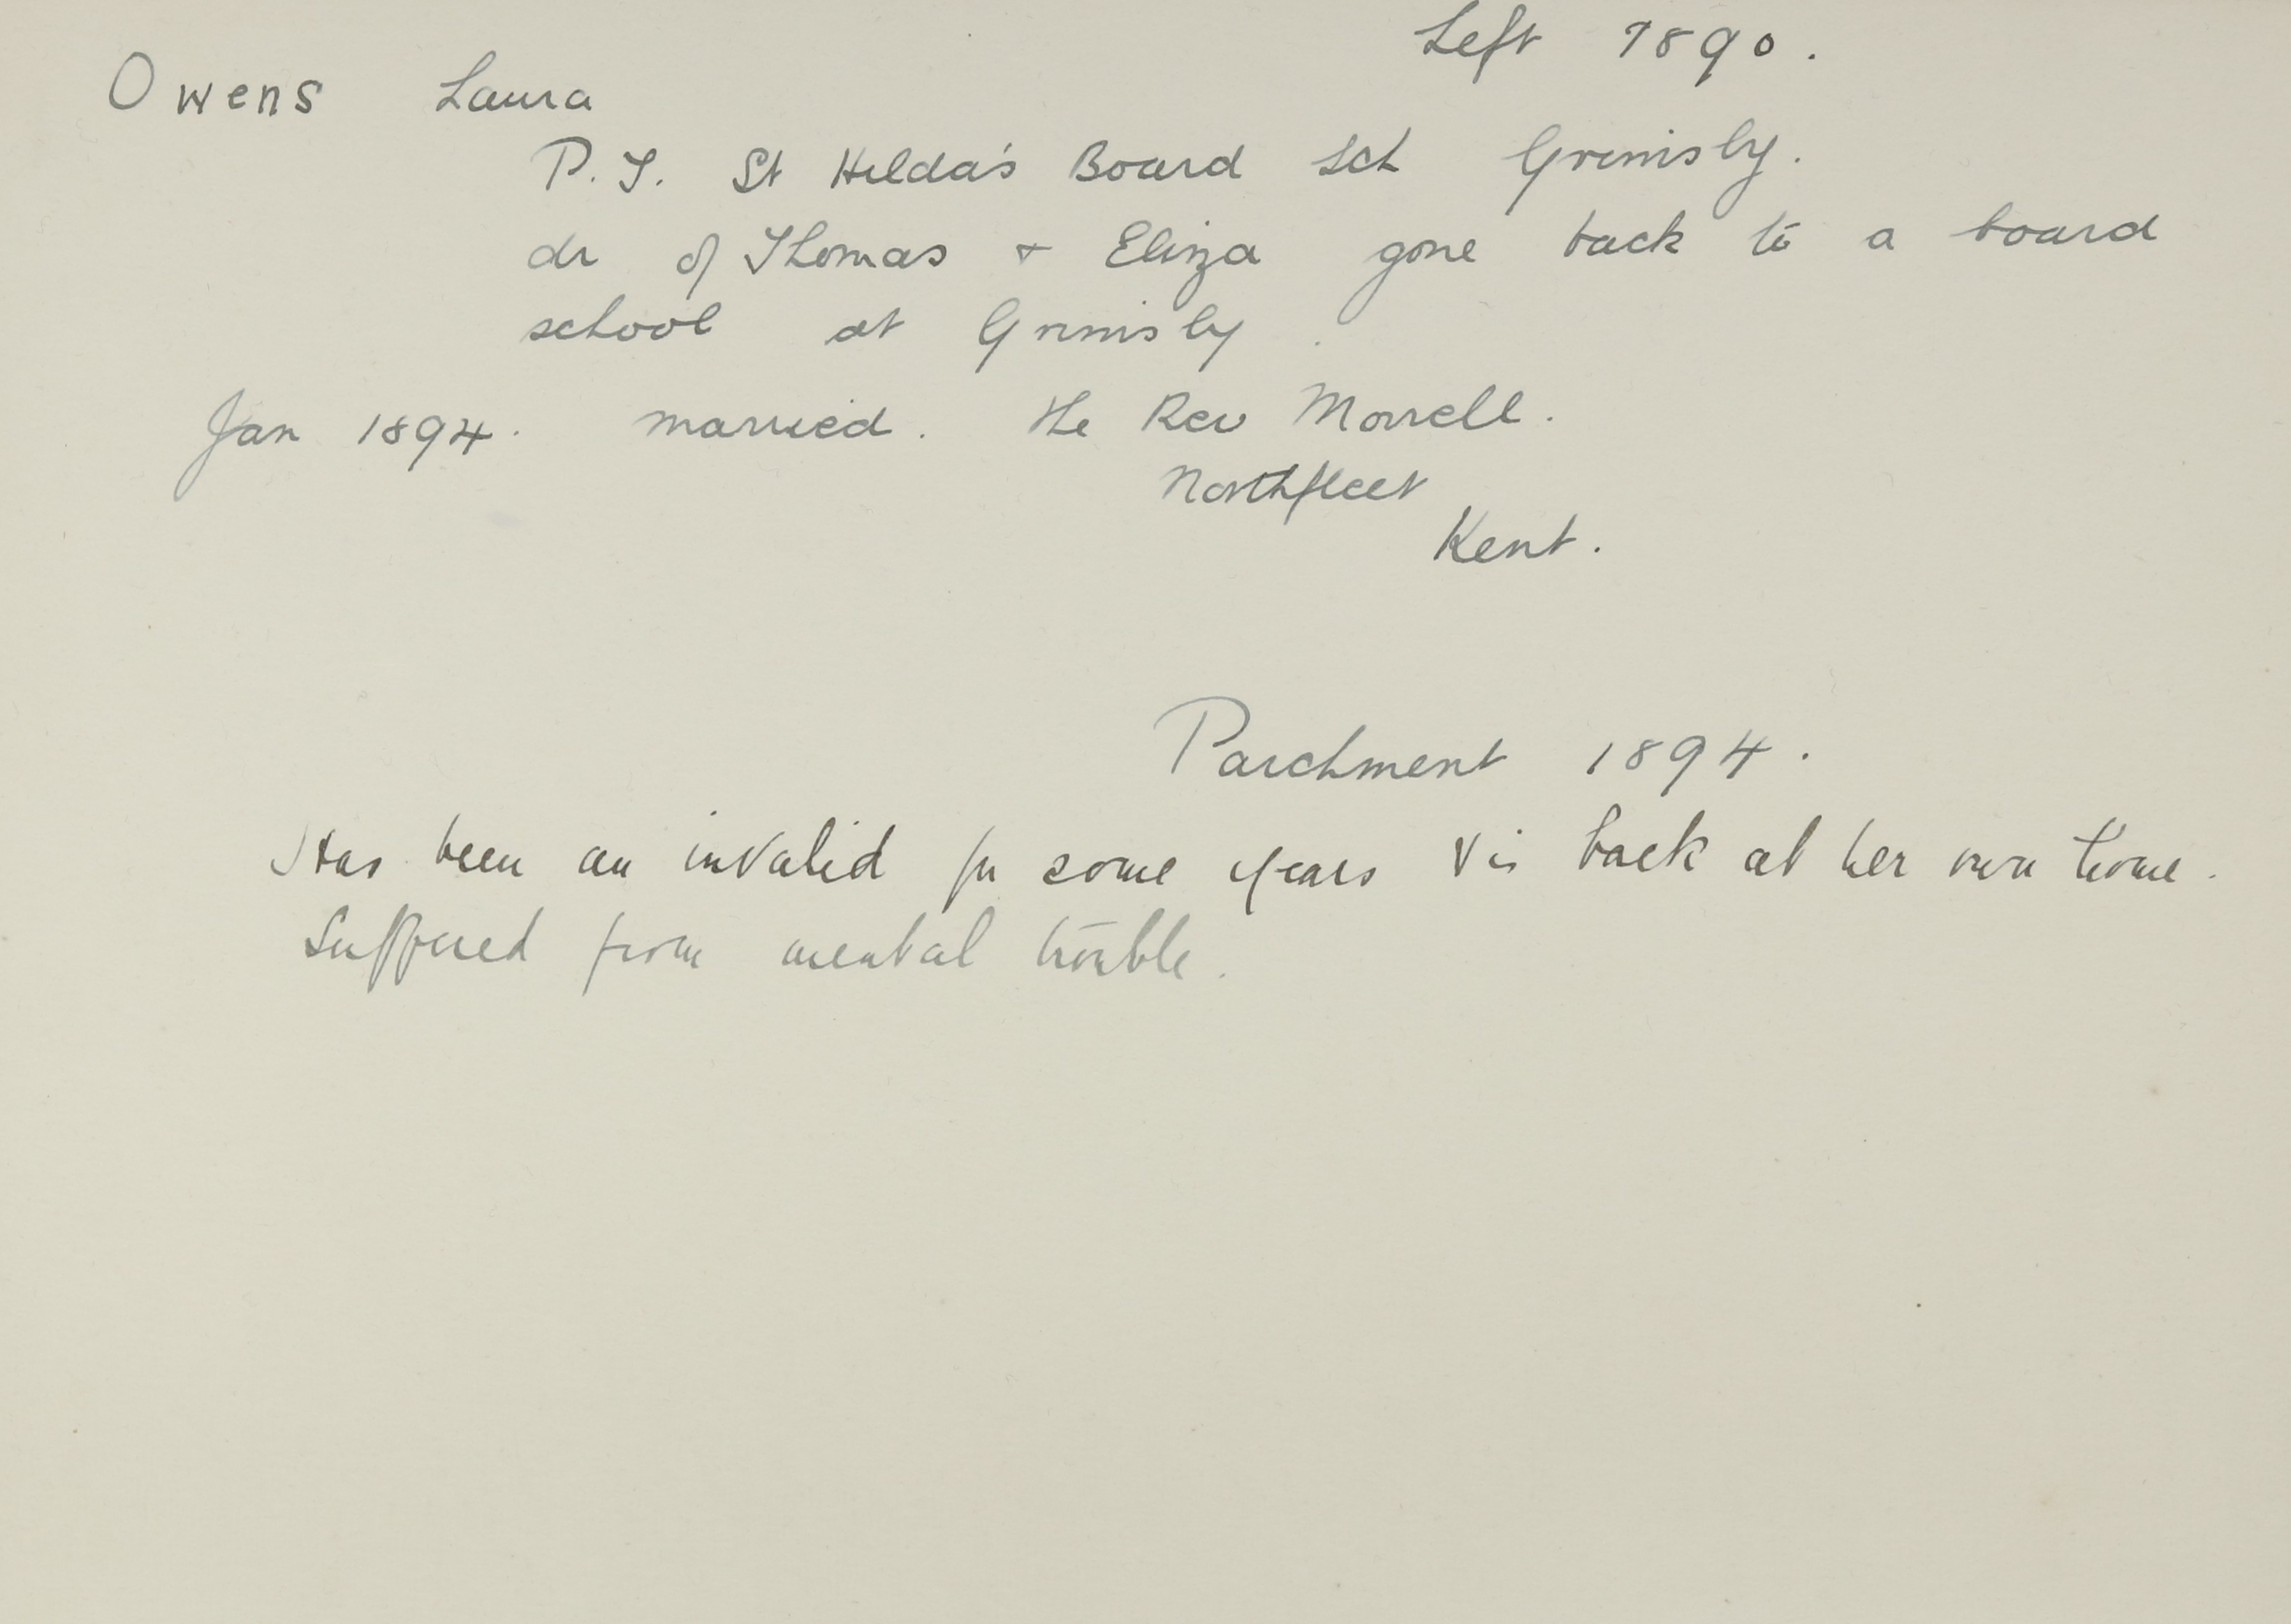 Left 1890.
Owens Laura
P.T. St Hilda's Board Sch Grimsby.
dr of Thomas & Eliza gone back to a board
school at Grimsby.
Jan 1894. married. the Rev Morrell.
Northfleet
Kent.
Parchment 1894.
Has been an invalid for some years & is back at her own home.
Suffered from mental trouble.